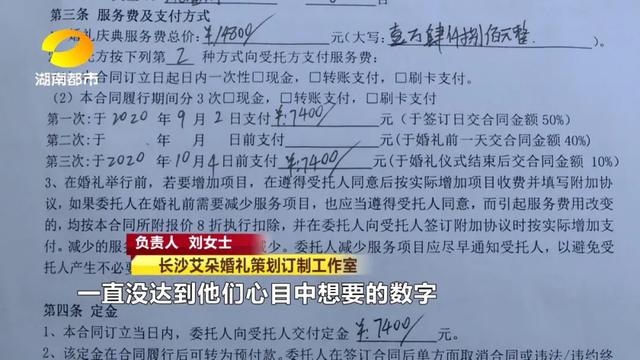 第三条 服务费及支付方式
婚礼庆典服务费总价: ¥14800/ 元(大写: 壹万肆仟捌佰元整 )。
方按下列第 2 种方式向受托方支付服务费:
本合同订立日起日内一次性□现金,□转账支付,□刷卡支付。
(2)本合同履行期间分3次□现金,□转账支付,□刷卡支付
第一次:于 2020 年 9 月 2 日支付 ¥:7400/ 元(于签订日交合同金额50%)
第二次:于 年 月 日前支付 元(于婚礼前一天交合同金额40%)
第三次:于 2020 年 10 月 4 日前支付 ¥:7400/ 元(于婚礼仪式结束后交合同金额 10%)
3、在婚礼举行前,若要增加项目,在遵得受托人同意后按实际增加项目收费并填写附加协
议,如果委托人在婚礼前需要减少服务项目,也应当遵得受托人同意,而引起服务费用改变
的,均按本合同所附报价8折执行扣除,并在委托人向受托人签订附加协议时按实际增加支
付。减少的服务 减少。委托人减少服务项目应尽早通知受托人,以避免受
托人产生不必要
湖南都市
负责人 刘女士
长沙艾朵婚礼策划订制工作室
一直没达到他们心目中想要的数字
第四条 定金
1、本合同订立当日内,委托人向受托人交付定金 ¥:7400/ 元。
2、该定金在合同履行后可转为预付款。委托人在签订合同后单方面取消合同或违法/违约终